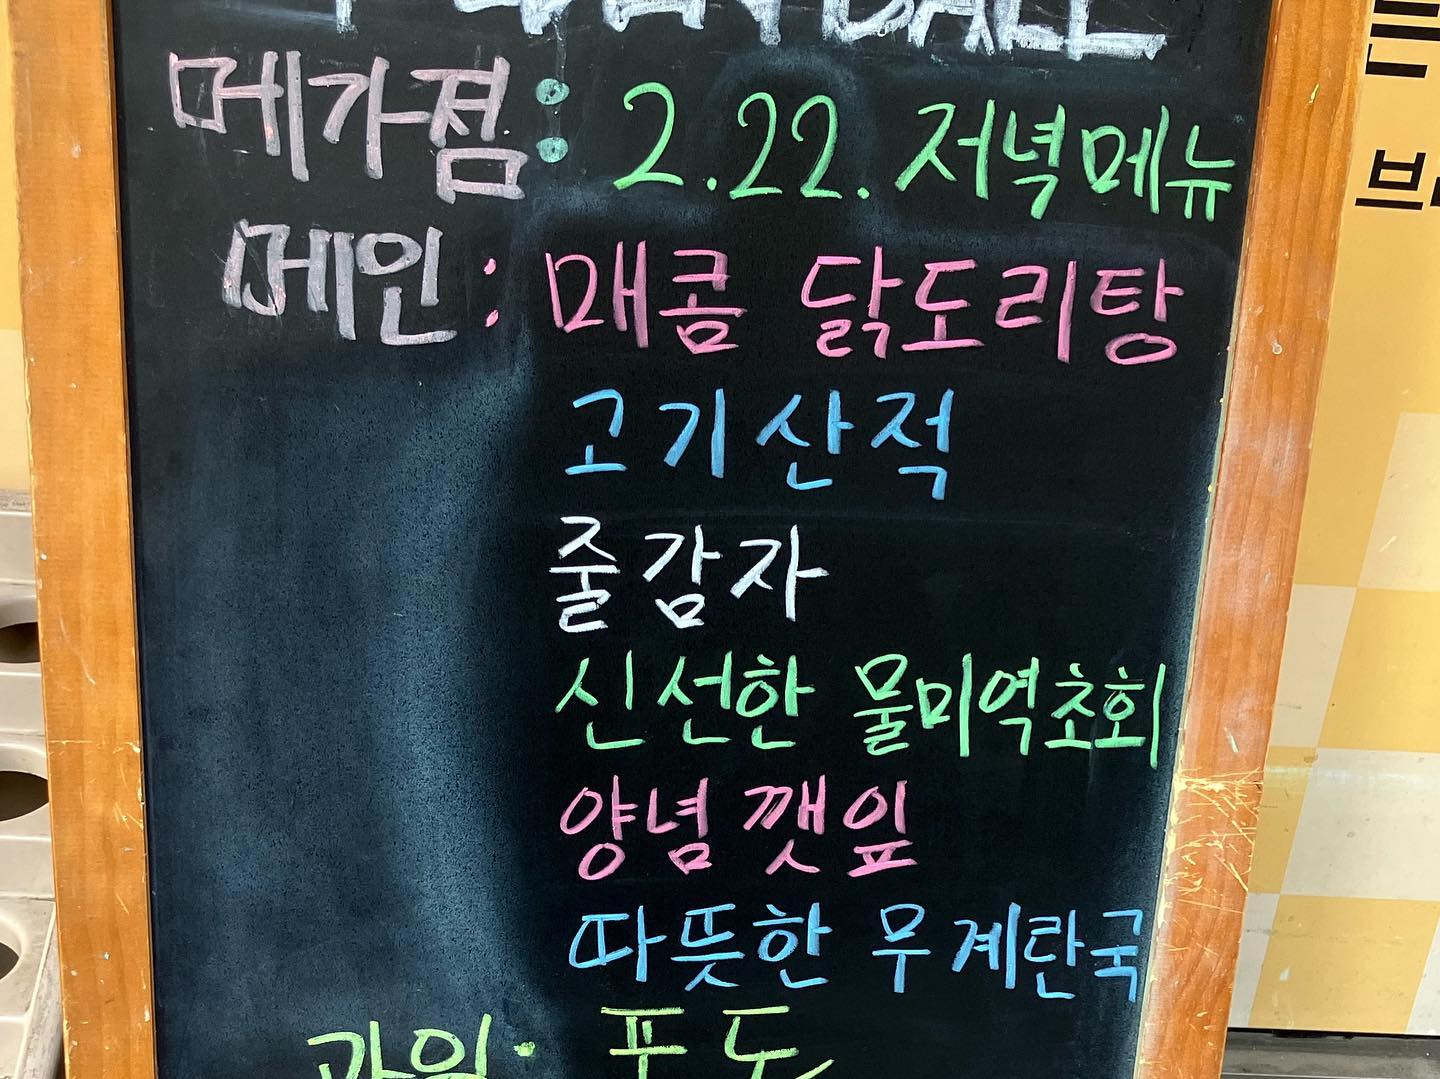 BALL
메가점: 2.22. 저녁메뉴
메인: 매콤 닭도리탕
고기산적
줄감자
신선한 물미역초회
양념깻잎
따뜻한 무계란국
과일: 포도